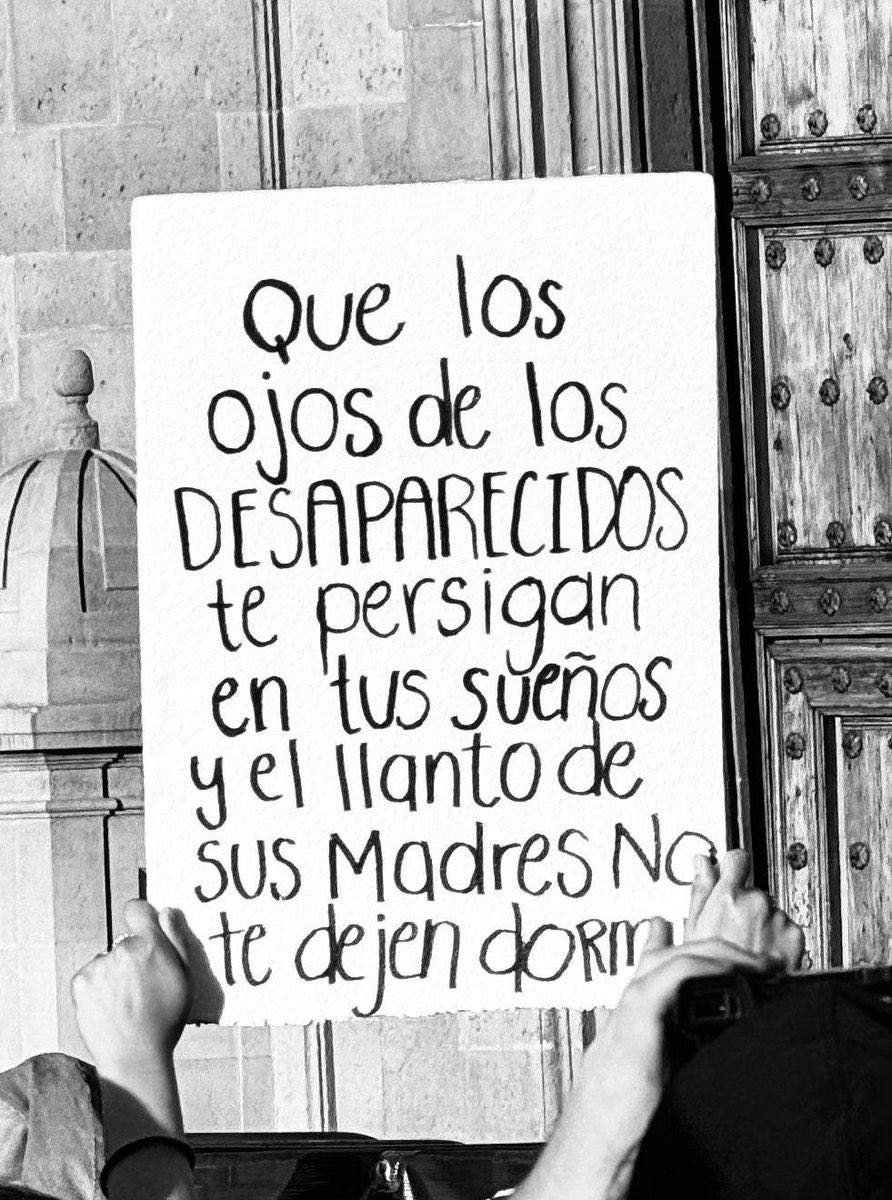 Que los
ojos de los
DESAPARECIDOS
te persigan
en tus sueños
y el llanto de
sus Madres No
te dejen